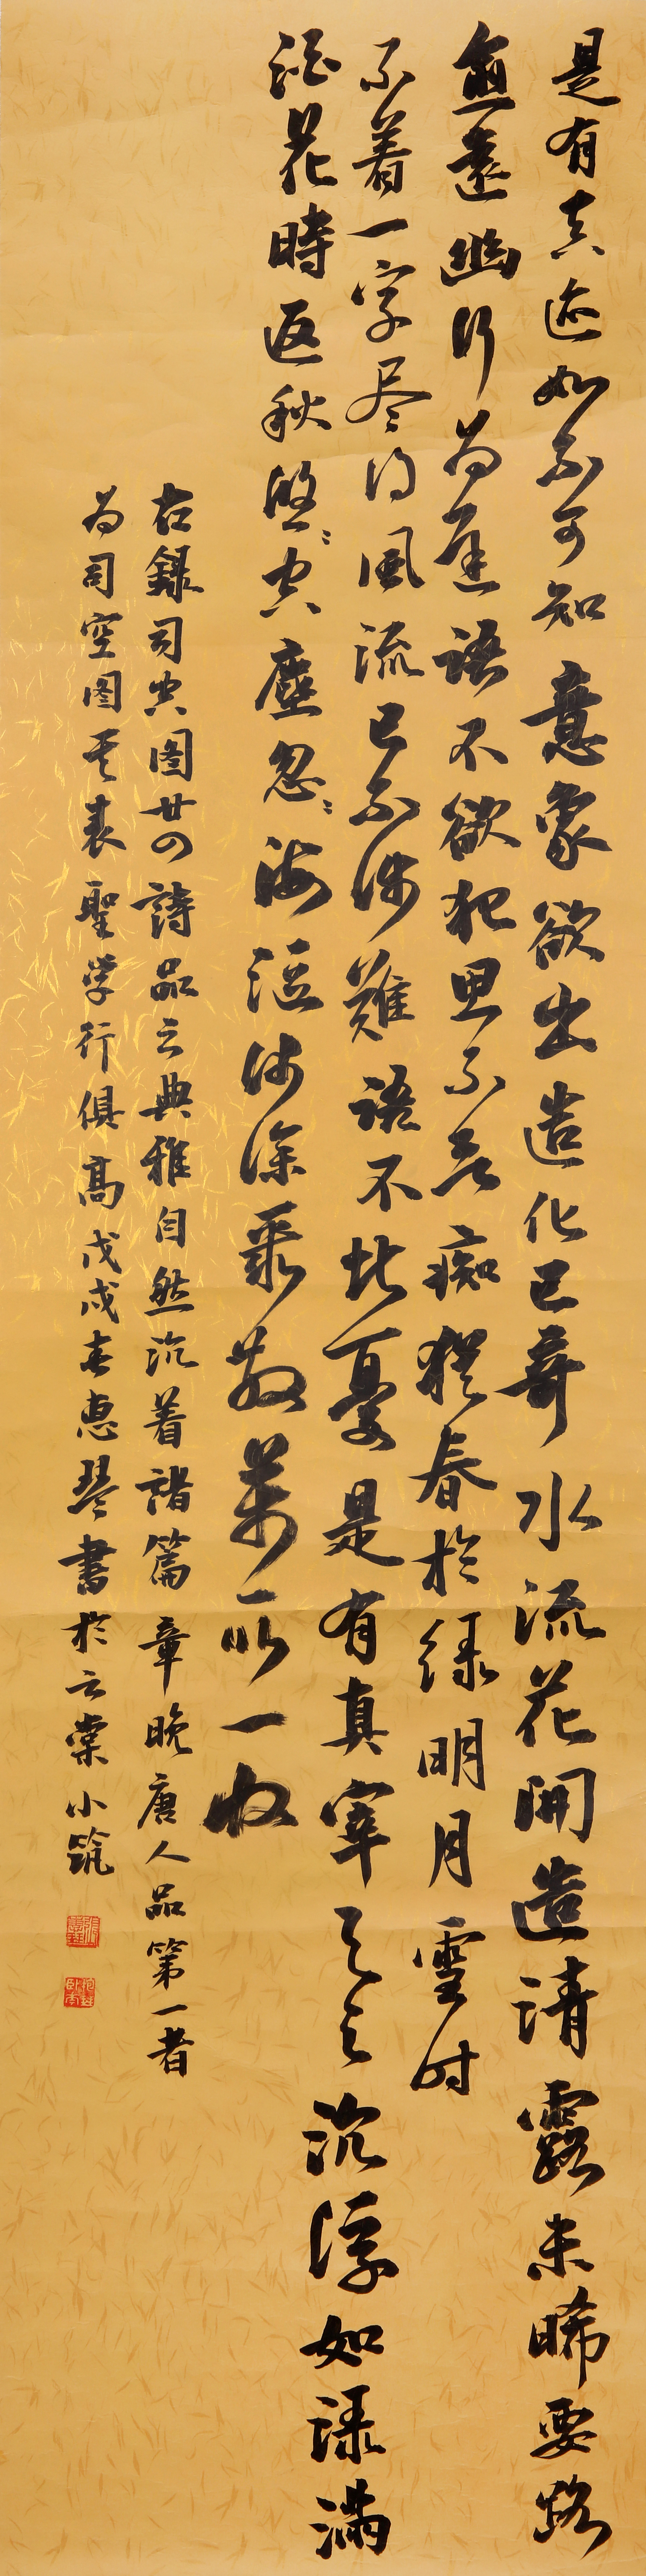 是有真迹如不可知意象欲出造化已奇水流花開造清露未晞要路
愈遠幽行为遲語不欲犯思不痴猶春於緑明月雪时
不着一字尽得風流已不涉難語不憂是有真宰与之沉浮如渌滿
酒花時返秋悠々空塵忽々海漚浅深聚散萬取一收
右録司空图廿四詩品之典雅自然沉着諸篇章晚唐人品第一者
为司空图字表聖学行俱高戊戌春惠琴書於云棠小筑